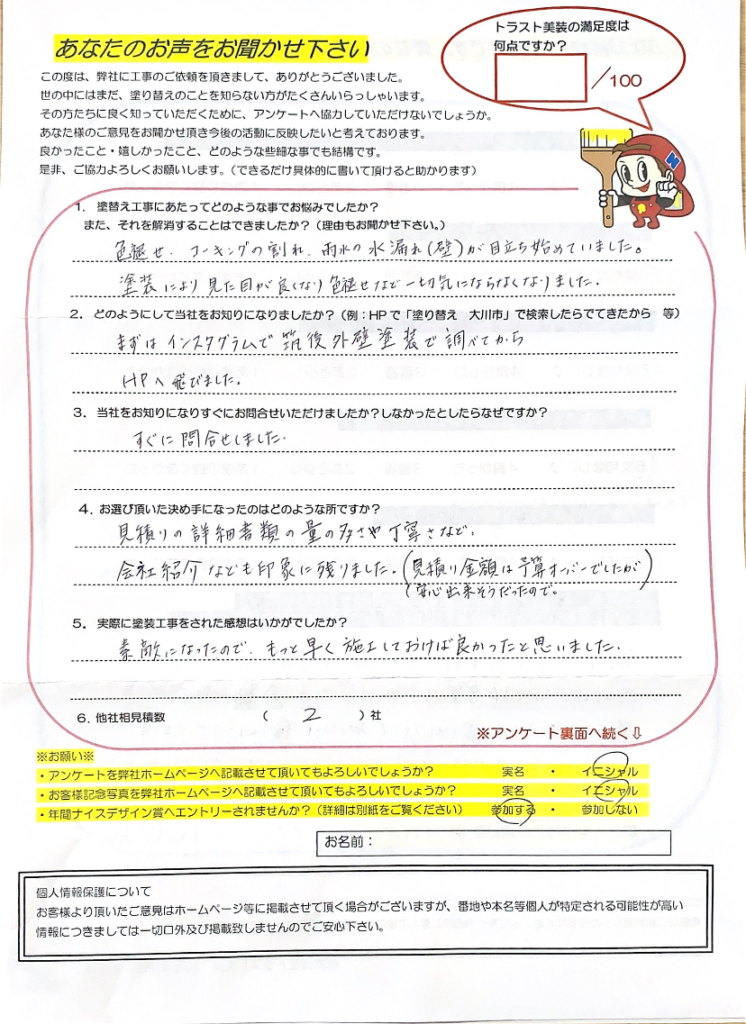 あなたのお声をお聞かせ下さい
トラスト美装の満足度は
何点ですか?
/100
この度は、弊社に工事のご依頼を頂きまして、ありがとうございました。
世の中にはまだ、塗り替えのことを知らない方がたくさんいらっしゃいます。
その方たちに良く知っていただくために、アンケートへ協力していただけないでしょうか。
あなた様のご意見をお聞かせ頂き今後の活動に反映したいと考えております。
良かったこと・嬉しかったこと、どのような些細な事でも結構です。
是非、ご協力よろしくお願いします。(できるだけ具体的に書いて頂けると助かります)
N
1. 塗替え工事にあたってどのような事でお悩みでしたか?
また、それを解消することはできましたか?(理由もお聞かせ下さい。)
色褪せ、コーキングの割れ、雨水の水漏れ(壁)が目立ち始めていました。
塗装により見た目が良くなり色褪せなど一切気にならなくなりました.
2. どのようにして当社をお知りになりましたか?(例:HPで「塗り替え 大川市」で検索したらでてきたから 等)
まずはインスタグラムで筑後外壁塗装で調べてから
HPへ飛びました.
3. 当社をお知りになりすぐにお問合せいただけましたか?しなかったとしたらなぜですか?
すぐに問合せしました.
4. お選び頂いた決め手になったのはどのような所ですか?
見積りの詳細書類の量の多さや丁寧さなど、
会社紹介なども印象に残りました.(見積り金額は予算オーバーでしたが
安心出来そうだったので.)
5. 実際に塗装工事をされた感想はいかがでしたか?
素敵になったので、もっと早く施工しておけば良かったと思いました.
6. 他社相見積数 ( 2 )社
※アンケート裏面へ続く⇩
※お願い※
・アンケートを弊社ホームページへ記載させて頂いてもよろしいでしょうか? 実名 ・ イニシャル
・お客様記念写真を弊社ホームページへ記載させて頂いてもよろしいでしょうか? 実名 ・ イニシャル
・年間ナイスデザイン賞へエントリーされませんか?(詳細は別紙をご覧ください) 参加する ・ 参加しない
お名前:
個人情報保護について
お客様より頂いたご意見はホームページ等に掲載させて頂く場合がございますが、番地や本名等個人が特定される可能性が高い
情報につきましては一切口外及び掲載致しませんのでご安心下さい。